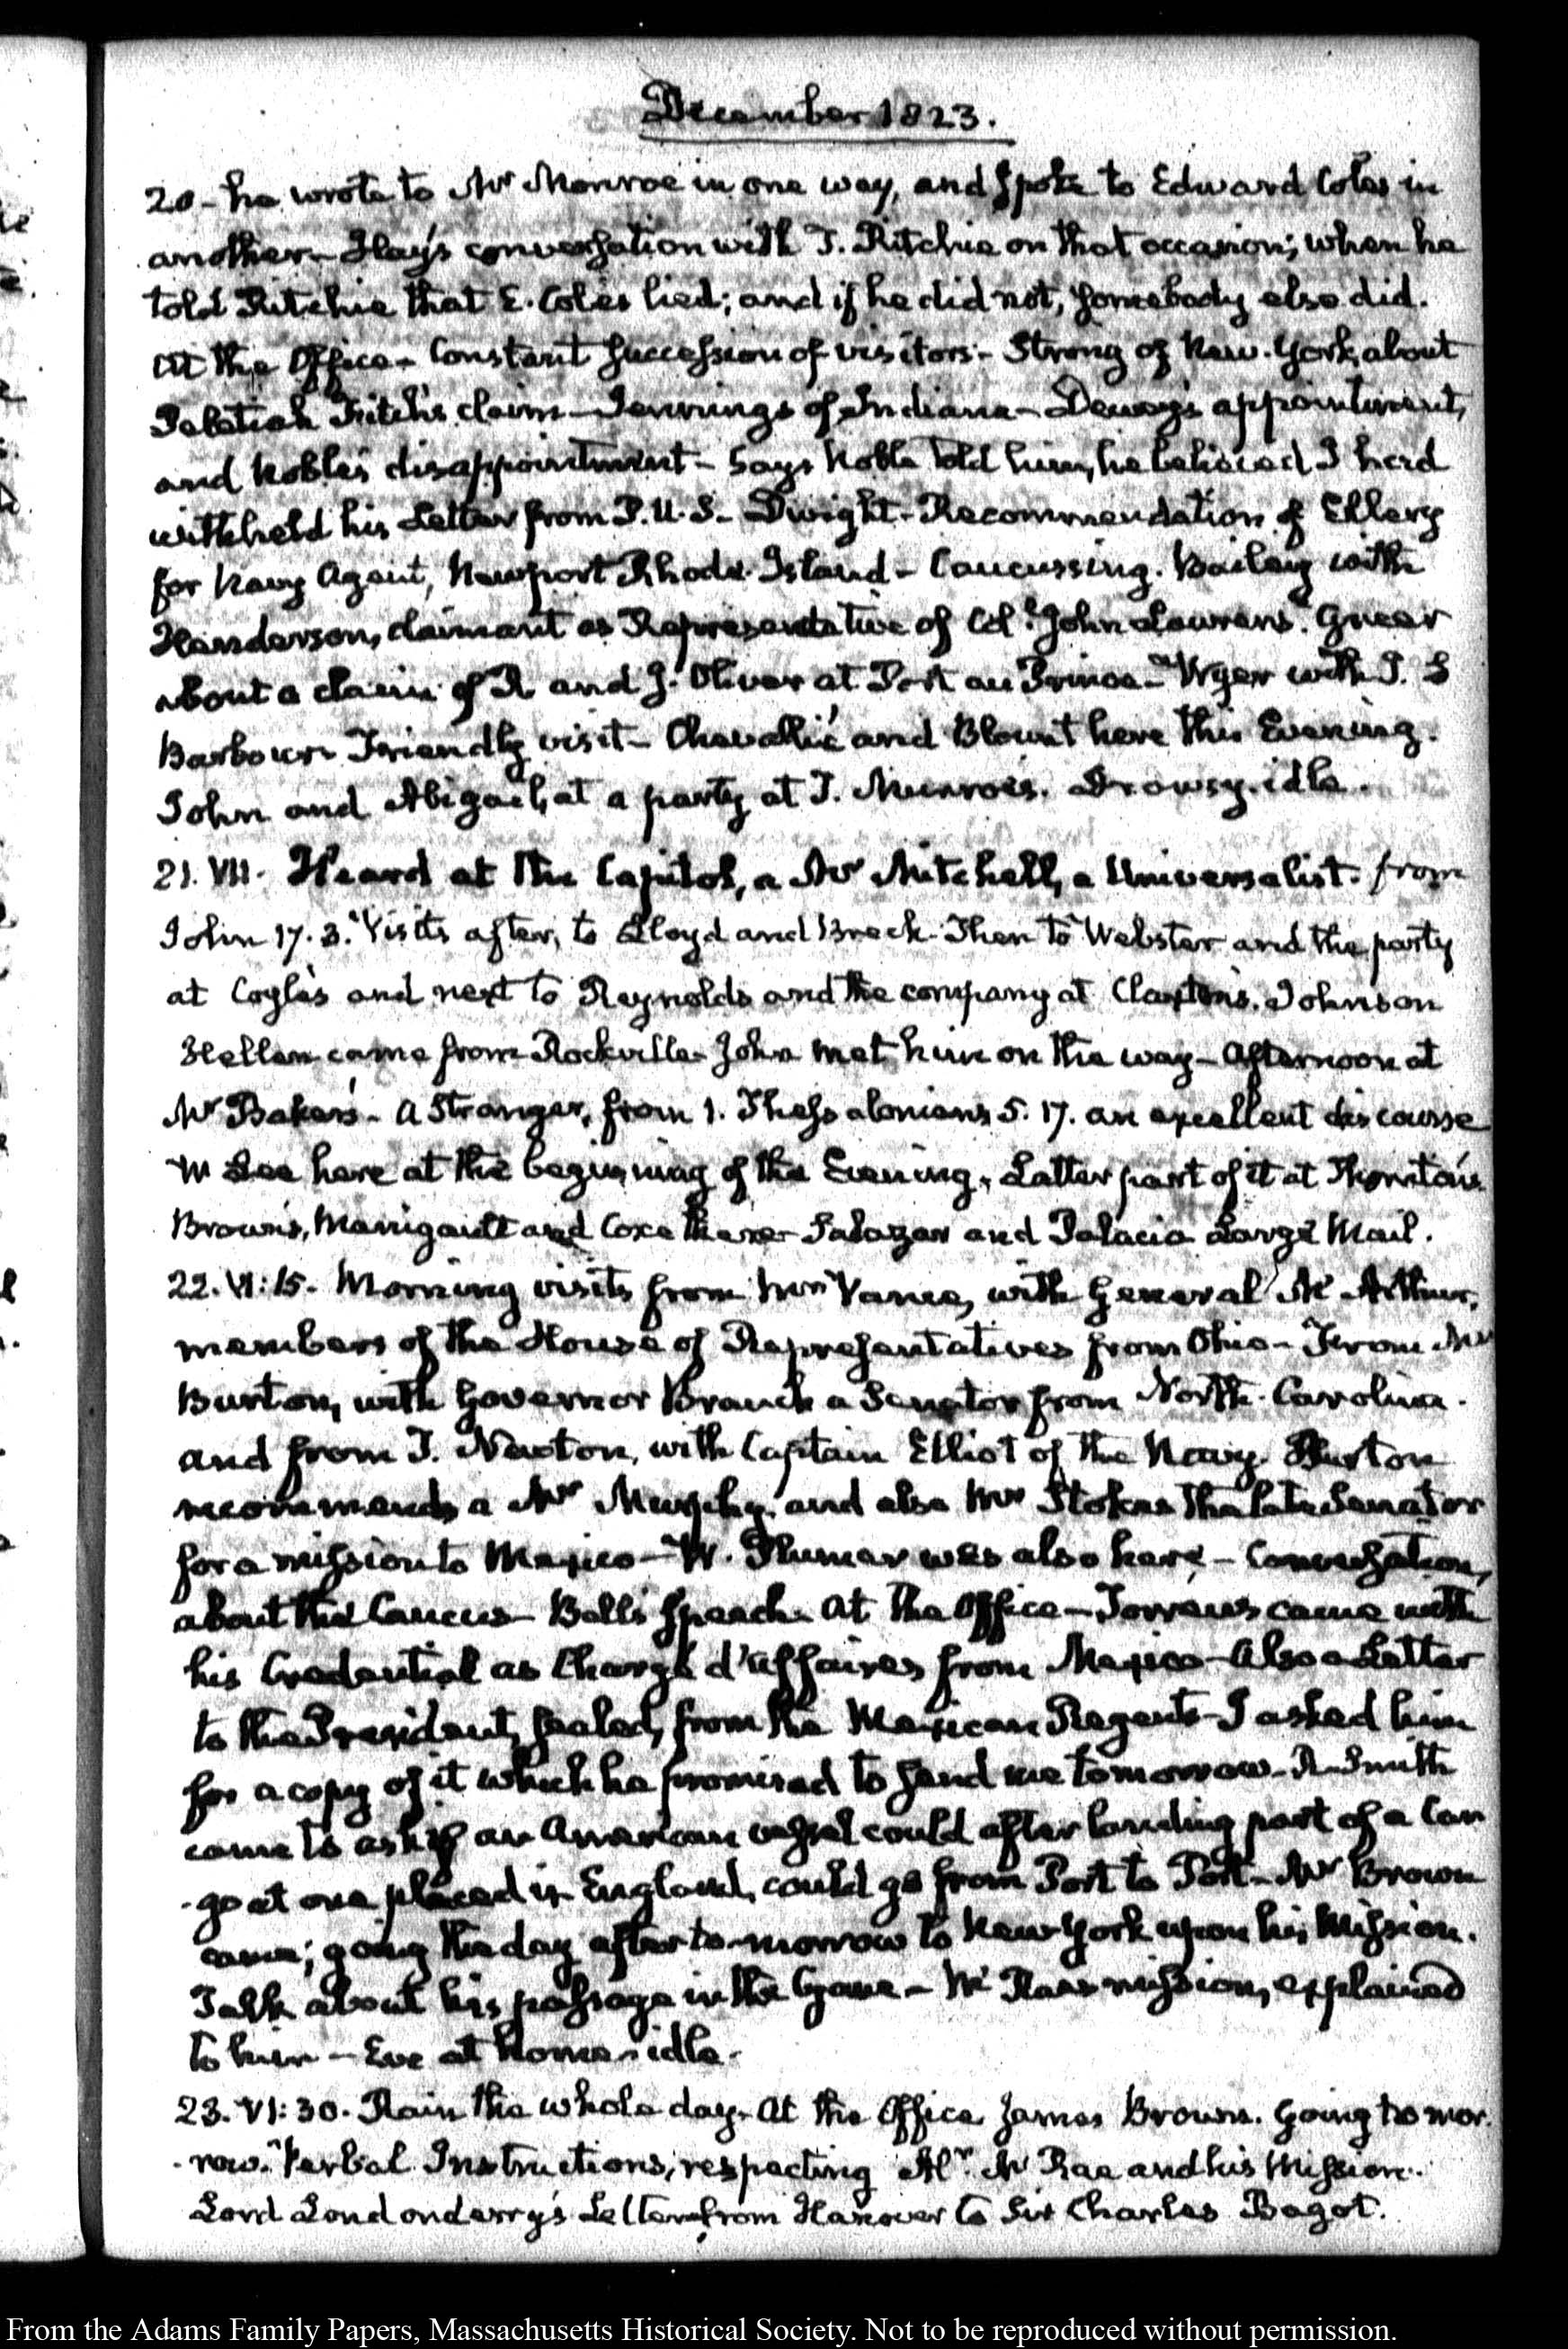 December 1823.
20 - he wrote to Mr Monroe in one way, and spoke to Edward Coles in
another - Hay's conversation with T. Ritchie on that occasion; when he
told Ritchie that E. Coles lied; and if he did not, somebody else did.
At the Office - Constant succession of visitors - Strong of New-York about
Pelatiah Fitch's claim - Jennings of Indiana - Dewey's appointment,
and Noble's disappointment - Says Noble told him, he believed I had
withheld his Letter from P.U.S. - Dwight - Recommendation of Ellery
for Navy Agent, Newport Rhode-Island - Caucussing. Bailey with
Henderson, claimant as Representative of Coll. John Laurens.
about a claim of R and J. Oliver at Port au Prince - Wyer with P. S
Barbour Friendly visit - Chevallié and Blount here this Evening.
John and Abigail, at a party at T. Munroe's. Drowsy. idle.
21. VII. Heard at the Capitol, a Mr Mitchell, a Universalist. from
John 17. 3. Visits after, to Lloyd and Breck. Then to Webster and the party
at Coyle's and next to Reynolds and the company at Claxton's. Johnson
Hellen came from Rockville - John met him on the way - Afternoon at
Mr Baker's - A Stranger, from 1. Thessalonians 5. 17. an excellent discourse
W Lee here at the beginning of the Evening. Latter part of it at Thornton's
Brown's, Manigault and Coxe there - Salazar and Palacio Large Mail.
22. VI: 15. Morning visits from Mr Vance, with General Mc Arthur,
members of the House of Representatives from Ohio - From Mr
Burton, with Governor Branch a Senator from North-Carolina.
and from T. Newton, with Captain Elliot of the Navy. Burton
recommends a Mr Murphy, and also Mr Stokes the late Senator
for a mission to Mexico - W. Plumer was also here - Conversation,
about the Caucus - Ball's speech. At the Office - Torrens came with
his Credential as Chargé d'affaires from Mexico - Also a Letter
to the President, sealed, from the Mexican Regents - I asked him
for a copy of it which he promised to send me tomorrow - R. Smith
came to ask if an American vessel could after landing part of a Car
-go at one placed in England, could go from Port to Port - Mr Brown
came; going the day after to-morrow to New York upon his Mission.
Talk about his passage in the Cyane - Mc Rae's mission, explained
to him - Eve at home - idle.
23. VI: 30. Rain the whole day. At the Office James Brown. Going to mor-
-row. Verbal Instructions, respecting Mc Rae and his Mission.
Lord Londonderry's Letter from Hanover to Sir Charles Bagot.
From the Adams Family Papers, Massachusetts Historical Society. Not to be reproduced without permission.